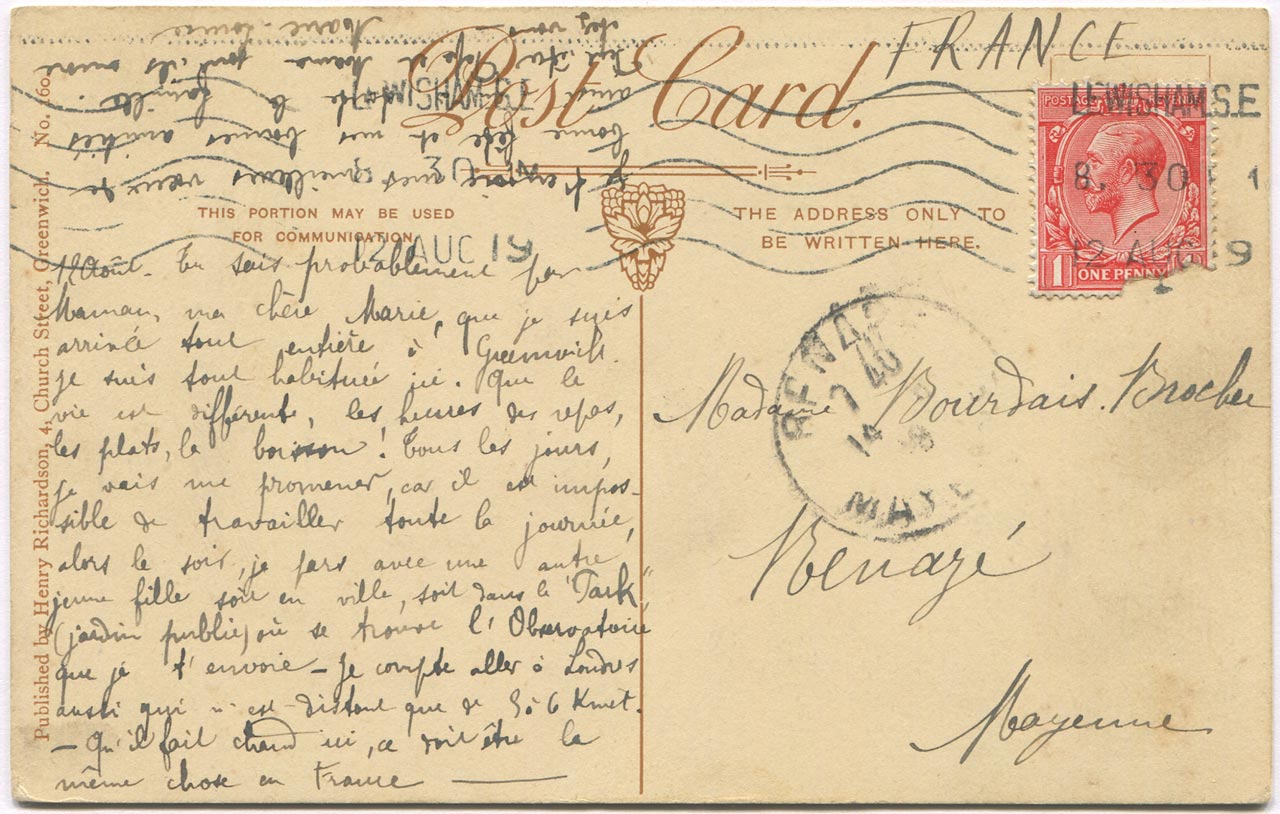 FRANCE
Post Card.
LEWISHAM.S.E
8. 30
12 AUG 19
LEWISHAM.S.E
30
12 AUG 19
POSTAGE REVENUE
1 ONE PENNY
THIS PORTION MAY BE USED
FOR COMMUNICATION
THE ADDRESS ONLY TO
BE WRITTEN HERE.
Published by Henry Richardson, 4, Church Street, Greenwich. No. 160
12 Août. Tu sais probablement par
Maman, ma chère Marie, que je suis
arrivée tout entière à Greenwich.
Je suis tout habituée ici. Que la
vie est différente, les heures des repas,
les plats, la boisson! Tous les jours,
je vais me promener, car il est impos-
sible de travailler toute la journée,
alors le soir, je pars avec une autre
jeune fille soit en ville, soit dans le "Park"
(jardin public) où se trouve l'Observatoire
que je t'envoie – Je compte aller à Londres
aussi qui n'est distant que de 5 à 6 Kmet.
– Qu'il fait chaud ici, ce doit être la
même chose en France –
Je t'envoie mes meilleurs vœux de
bonne fête et mes bonnes amitiés
ainsi la famille
et Mame sont ils encore
chez vous
Marie-Louise
RENAZÉ
14
MAYENNE
Madame Bourdais. Brochu
Renazé
Mayenne